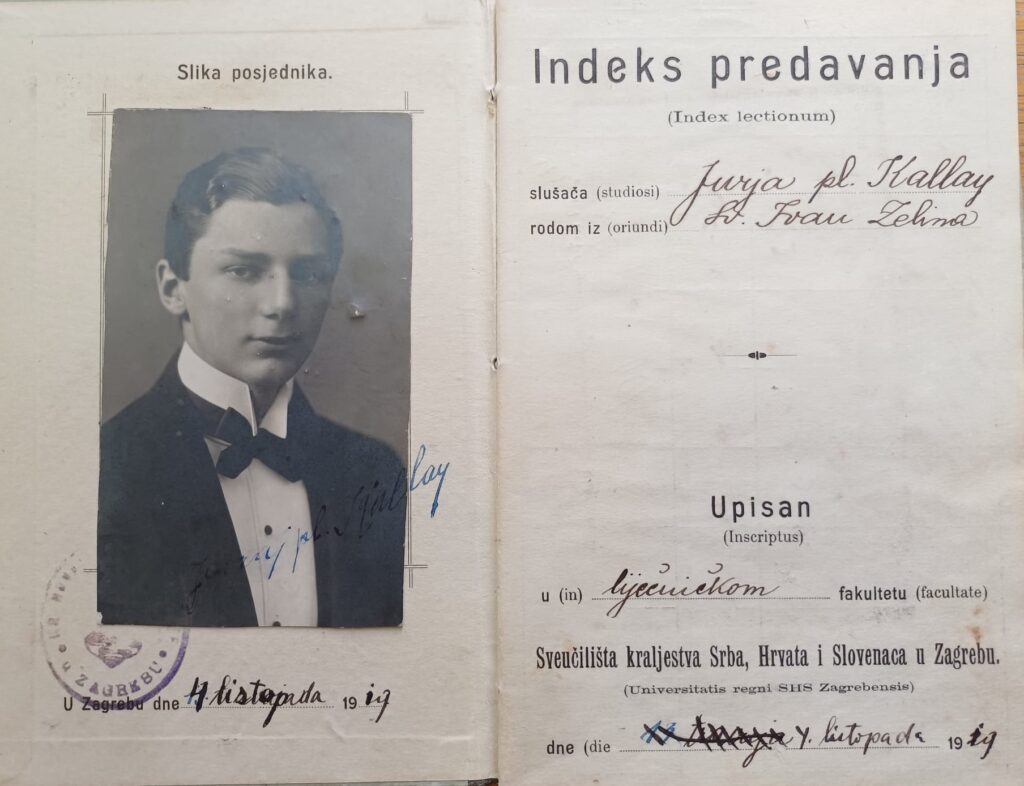 Slika posjednika.
Juraj pl. Kallay
U ZAGREBU
U Zagrebu dne 4. listopada 1919
Indeks predavanja
(Index lectionum)
slušača (studiosi) Jurja pl. Kallay
rodom iz (oriundi) Sv. Ivan Zelina
Upisan
(Inscriptus)
u (in) liječničkom fakultetu (facultate)
Sveučilišta kraljestva Srba, Hrvata i Slovenaca u Zagrebu.
(Universitatis regni SHS Zagrebensis)
dne (die 4. listopada 1919